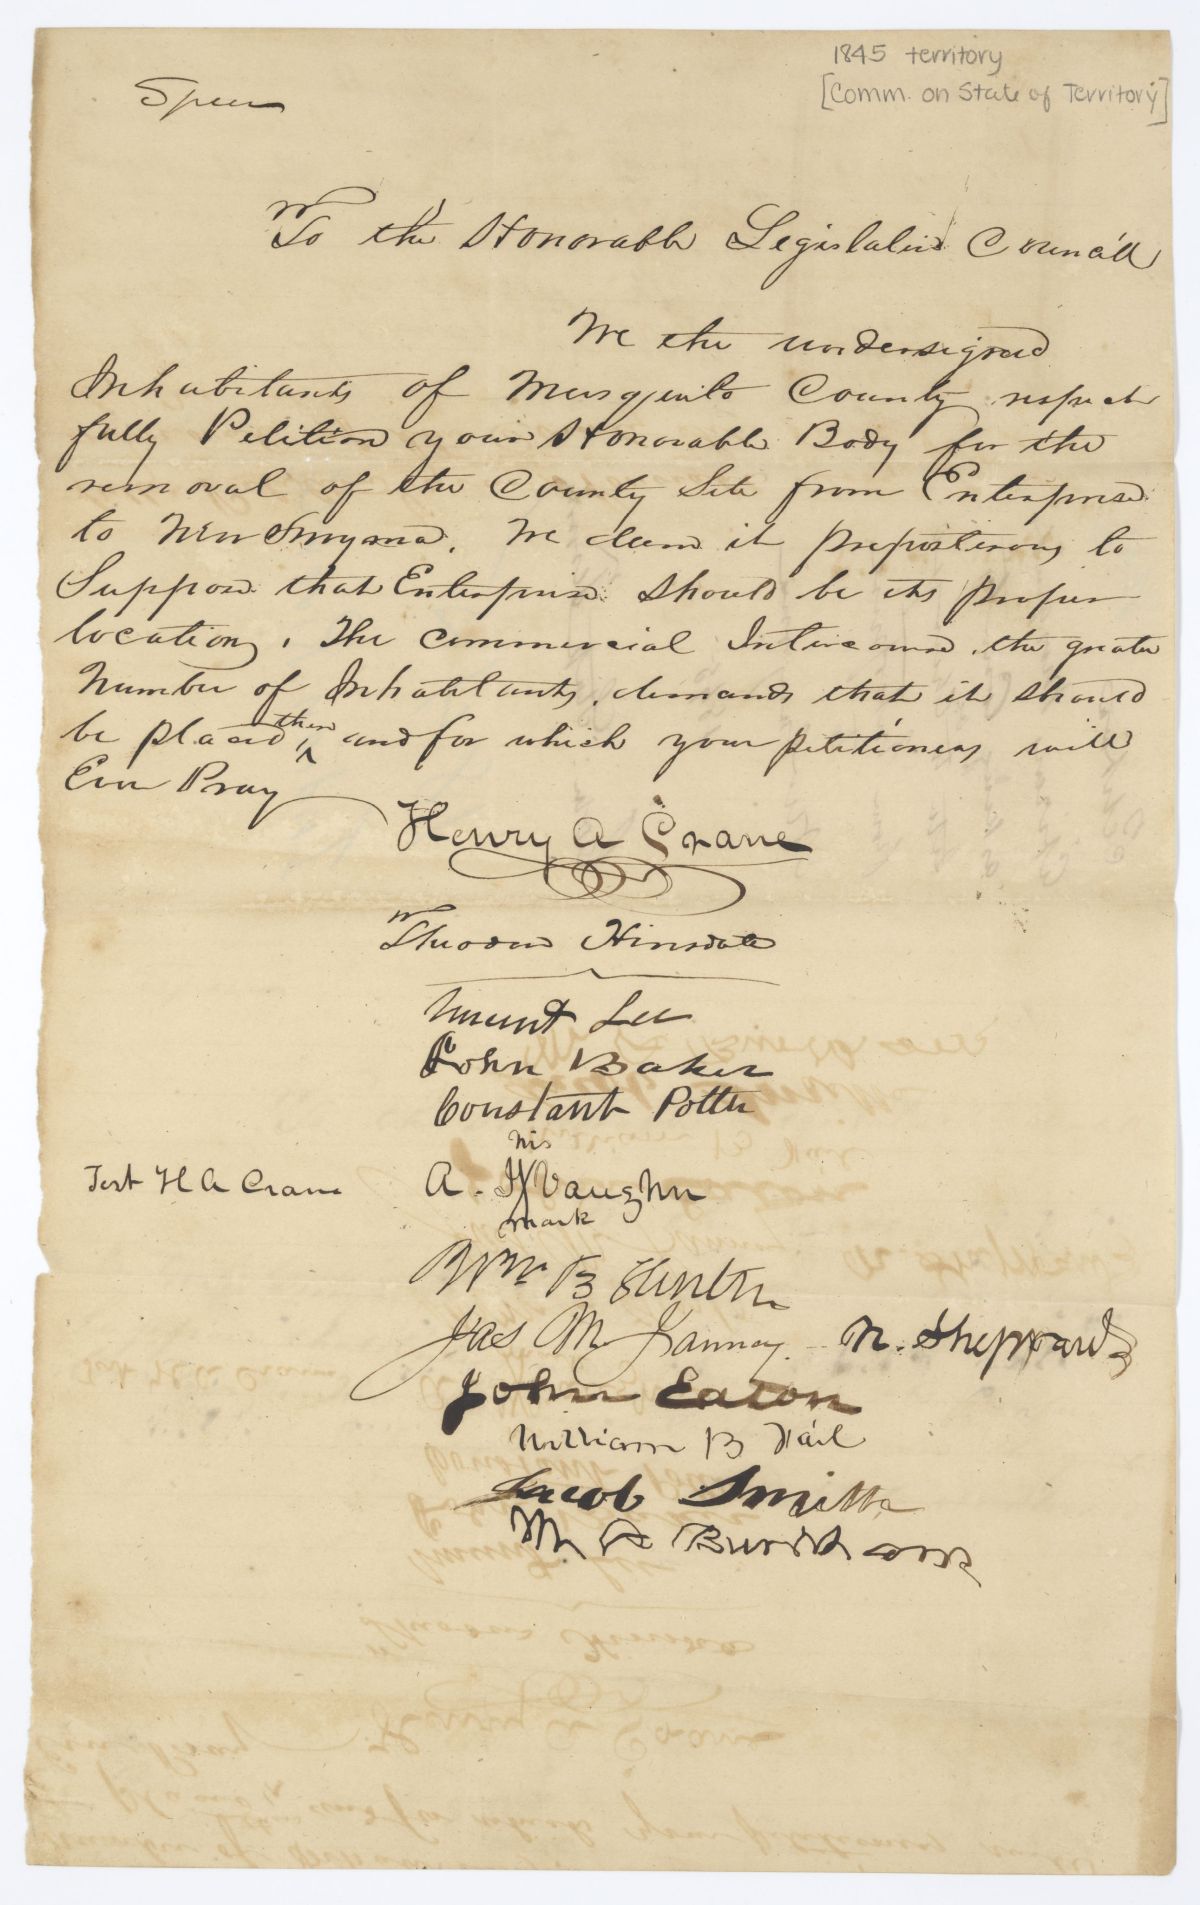 1845 territory
[Comm. on State of Territory]
Speer
To the Honorable Legislative Councill
We the undersigned
Inhabitants of Musquito County respect
fully Petition your Honorable Body for the
removal of the County Site from Enterprise
to New Smyrna. We deem it preposterous to
Suppose that Enterprise should be its proper
location, The commercial Intercourse, the greater
Number of Inhabitants, demands that it should
be placed there and for which your petitioners will
Ever Pray
Henry A Crane
Theodore Hinsdale
Vincent Lee
John Baker
Constant Potter
his
Test H A Crane A. X Vaughn
mark
Wm B
Jas M N. Sheppard
John Eaton
William B
Jacob Smith